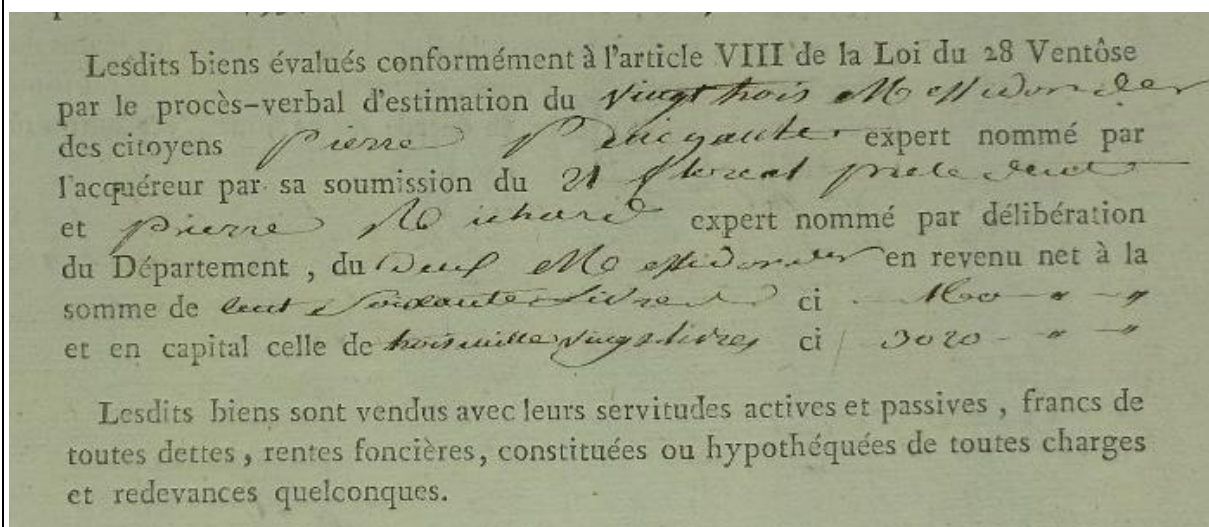 Lesdits biens évalués conformément à l'article VIII de la Loi du 28 Ventôse
par le procès-verbal d'estimation du vingt trois Messidor der
des citoyens pierre expert nommé par
l'acquéreur par sa soumission du 21 floreal precedent
et pierre Richard expert nommé par délibération
du Département , du Deux Messidor der en revenu net à la
somme de cent Soixante Livres ci 160 " "
et en capital celle de trois mille vingt livres ci 3020 - " "
Lesdits biens sont vendus avec leurs servitudes actives et passives , francs de
toutes dettes , rentes foncières, constituées ou hypothéquées de toutes charges
et redevances quelconques.